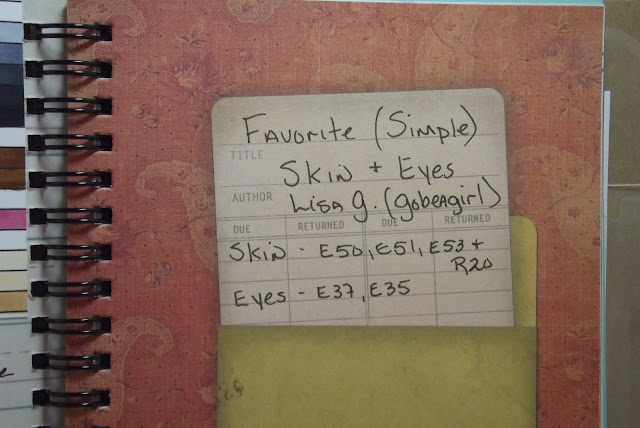 Favorite (Simple)
TITLE
Skin + Eyes
AUTHOR Lisa G. (gobeagirl)
DUE RETURNED DUE RETURNED
Skin - E50, E51, E53 +
R20
Eyes - E37, E35